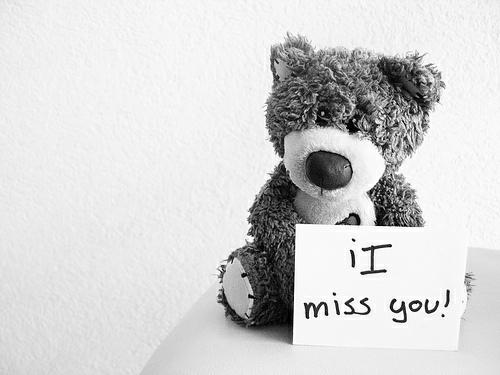 iI
miss you!